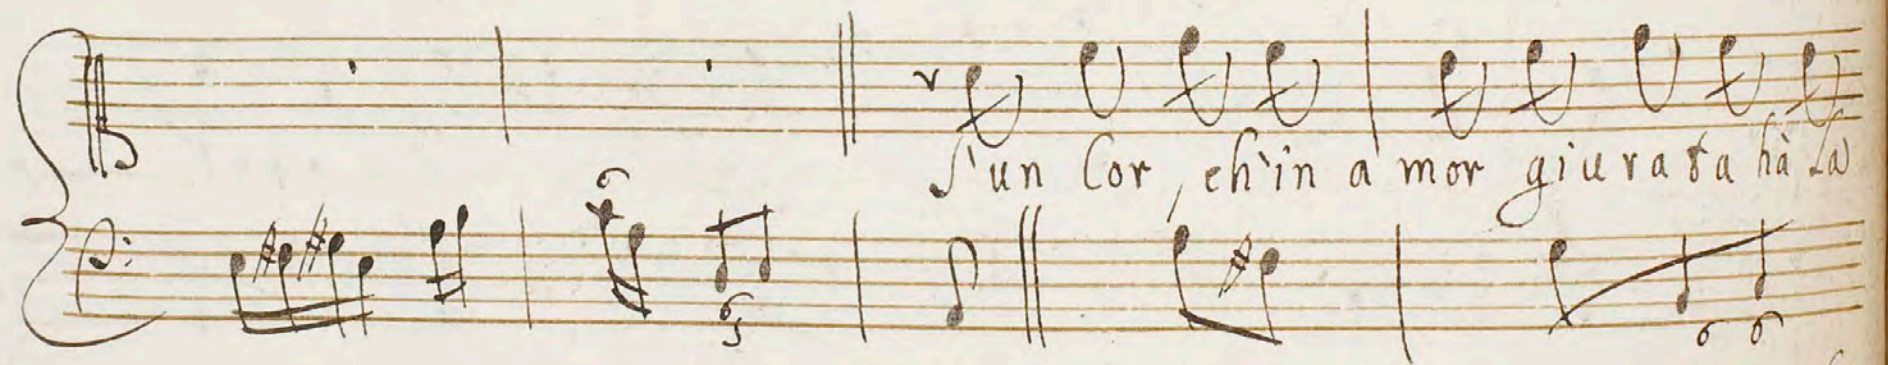 S'un Cor, ch'in a mor giurata hà la
6
6
5
6 6